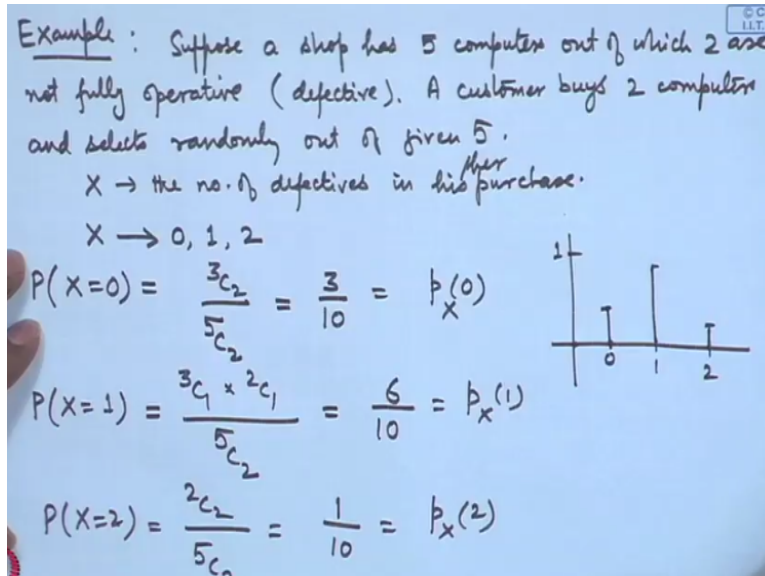 © C
I.I.T.
Example : Suppose a shop has 5 computers out of which 2 are
not fully operative (defective). A customer buys 2 computers
and selects randomly out of given 5.
X → the no. of defectives in his/her purchase.
X → 0, 1, 2
P(X=0) = ³C₂ / ⁵C₂ = 3/10 = p_X(0)
P(X=1) = ³C₁ × ²C₁ / ⁵C₂ = 6/10 = p_X(1)
P(X=2) = ²C₂ / ⁵C₂ = 1/10 = p_X(2)
1
0 1 2